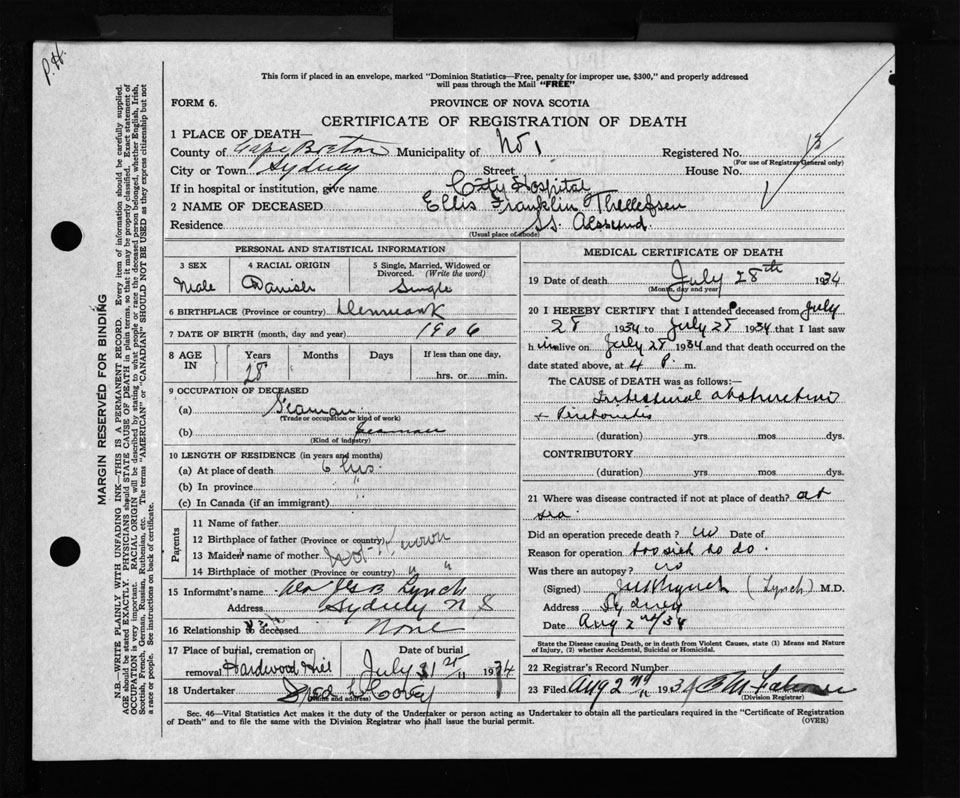 P.H.
This form if placed in an envelope, marked "Dominion Statistics—Free, penalty for improper use, $300," and properly addressed
will pass through the Mail "FREE"
FORM 6.
PROVINCE OF NOVA SCOTIA
CERTIFICATE OF REGISTRATION OF DEATH
1 PLACE OF DEATH—
County of Cape Breton Municipality of No 1 Registered No.
(For use of Registrar General only)
City or Town Sydney Street House No.
If in hospital or institution, give name City Hospital
2 NAME OF DECEASED Ellis Franklin Thellefsen
Residence S.S.
(Usual place of abode)
PERSONAL AND STATISTICAL INFORMATION
3 SEX Male
4 RACIAL ORIGIN Danish
5 Single, Married, Widowed or Divorced. (Write the word) Single
6 BIRTHPLACE (Province or country) Denmark
7 DATE OF BIRTH (month, day and year) 1906
8 AGE IN Years 28 Months Days If less than one day, hrs. or min.
9 OCCUPATION OF DECEASED
(a) Seaman
(Trade or occupation or kind of work)
(b) Seaman
(Kind of industry)
10 LENGTH OF RESIDENCE (in years and months)
(a) At place of death 6 hrs.
(b) In province "
(c) In Canada (if an immigrant) "
Parents
11 Name of father
12 Birthplace of father (Province or country)
13 Maiden name of mother Not Known
14 Birthplace of mother (Province or country) " "
15 Informant's name Lynch
Address Sydney N S
16 Relationship to deceased None
17 Place of burial, cremation or removal Hardwood Hill Date of burial July 31st 1934
18 Undertaker
(Name and address)
MEDICAL CERTIFICATE OF DEATH
19 Date of death July 28th 1934
(Month, day and year)
20 I HEREBY CERTIFY that I attended deceased from July
28 1934 to July 28 1934 that I last saw
him alive on July 28 1934 and that death occurred on the
date stated above, at 4 P. m.
The CAUSE of DEATH was as follows:—
Intestinal obstruction
+ Peritonitis
(duration) yrs mos dys.
CONTRIBUTORY
(duration) yrs mos dys.
21 Where was disease contracted if not at place of death? at
sea
Did an operation precede death? no Date of
Reason for operation too sick to do.
Was there an autopsy? no
(Signed) (Lynch) M.D.
Address Sydney
Date Aug 2nd/34
State the Disease causing Death, or in death from Violent Causes, state (1) Means and Nature
of Injury, (2) whether Accidental, Suicidal or Homicidal.
22 Registrar's Record Number
23 Filed Aug 2nd 1934
(Division Registrar)
Sec. 46—Vital Statistics Act makes it the duty of the Undertaker or person acting as Undertaker to obtain all the particulars required in the "Certificate of Registration
of Death" and to file the same with the Division Registrar who shall issue the burial permit. (OVER)
MARGIN RESERVED FOR BINDING
N.B.—WRITE PLAINLY WITH UNFADING INK—THIS IS A PERMANENT RECORD. Every item of information should be carefully supplied.
AGE should be stated EXACTLY. PHYSICIANS should STATE CAUSE OF DEATH in plain terms, so that it may be properly classified. Exact statement of
OCCUPATION is very important. RACIAL ORIGIN will be described by stating to what people or race the deceased person belonged, whether English, Irish,
Scottish, French, German, Russian, Ruthenian, etc. The terms "AMERICAN" or "CANADIAN" SHOULD NOT BE USED as they express citizenship but not
a race or people. See instructions on back of certificate.